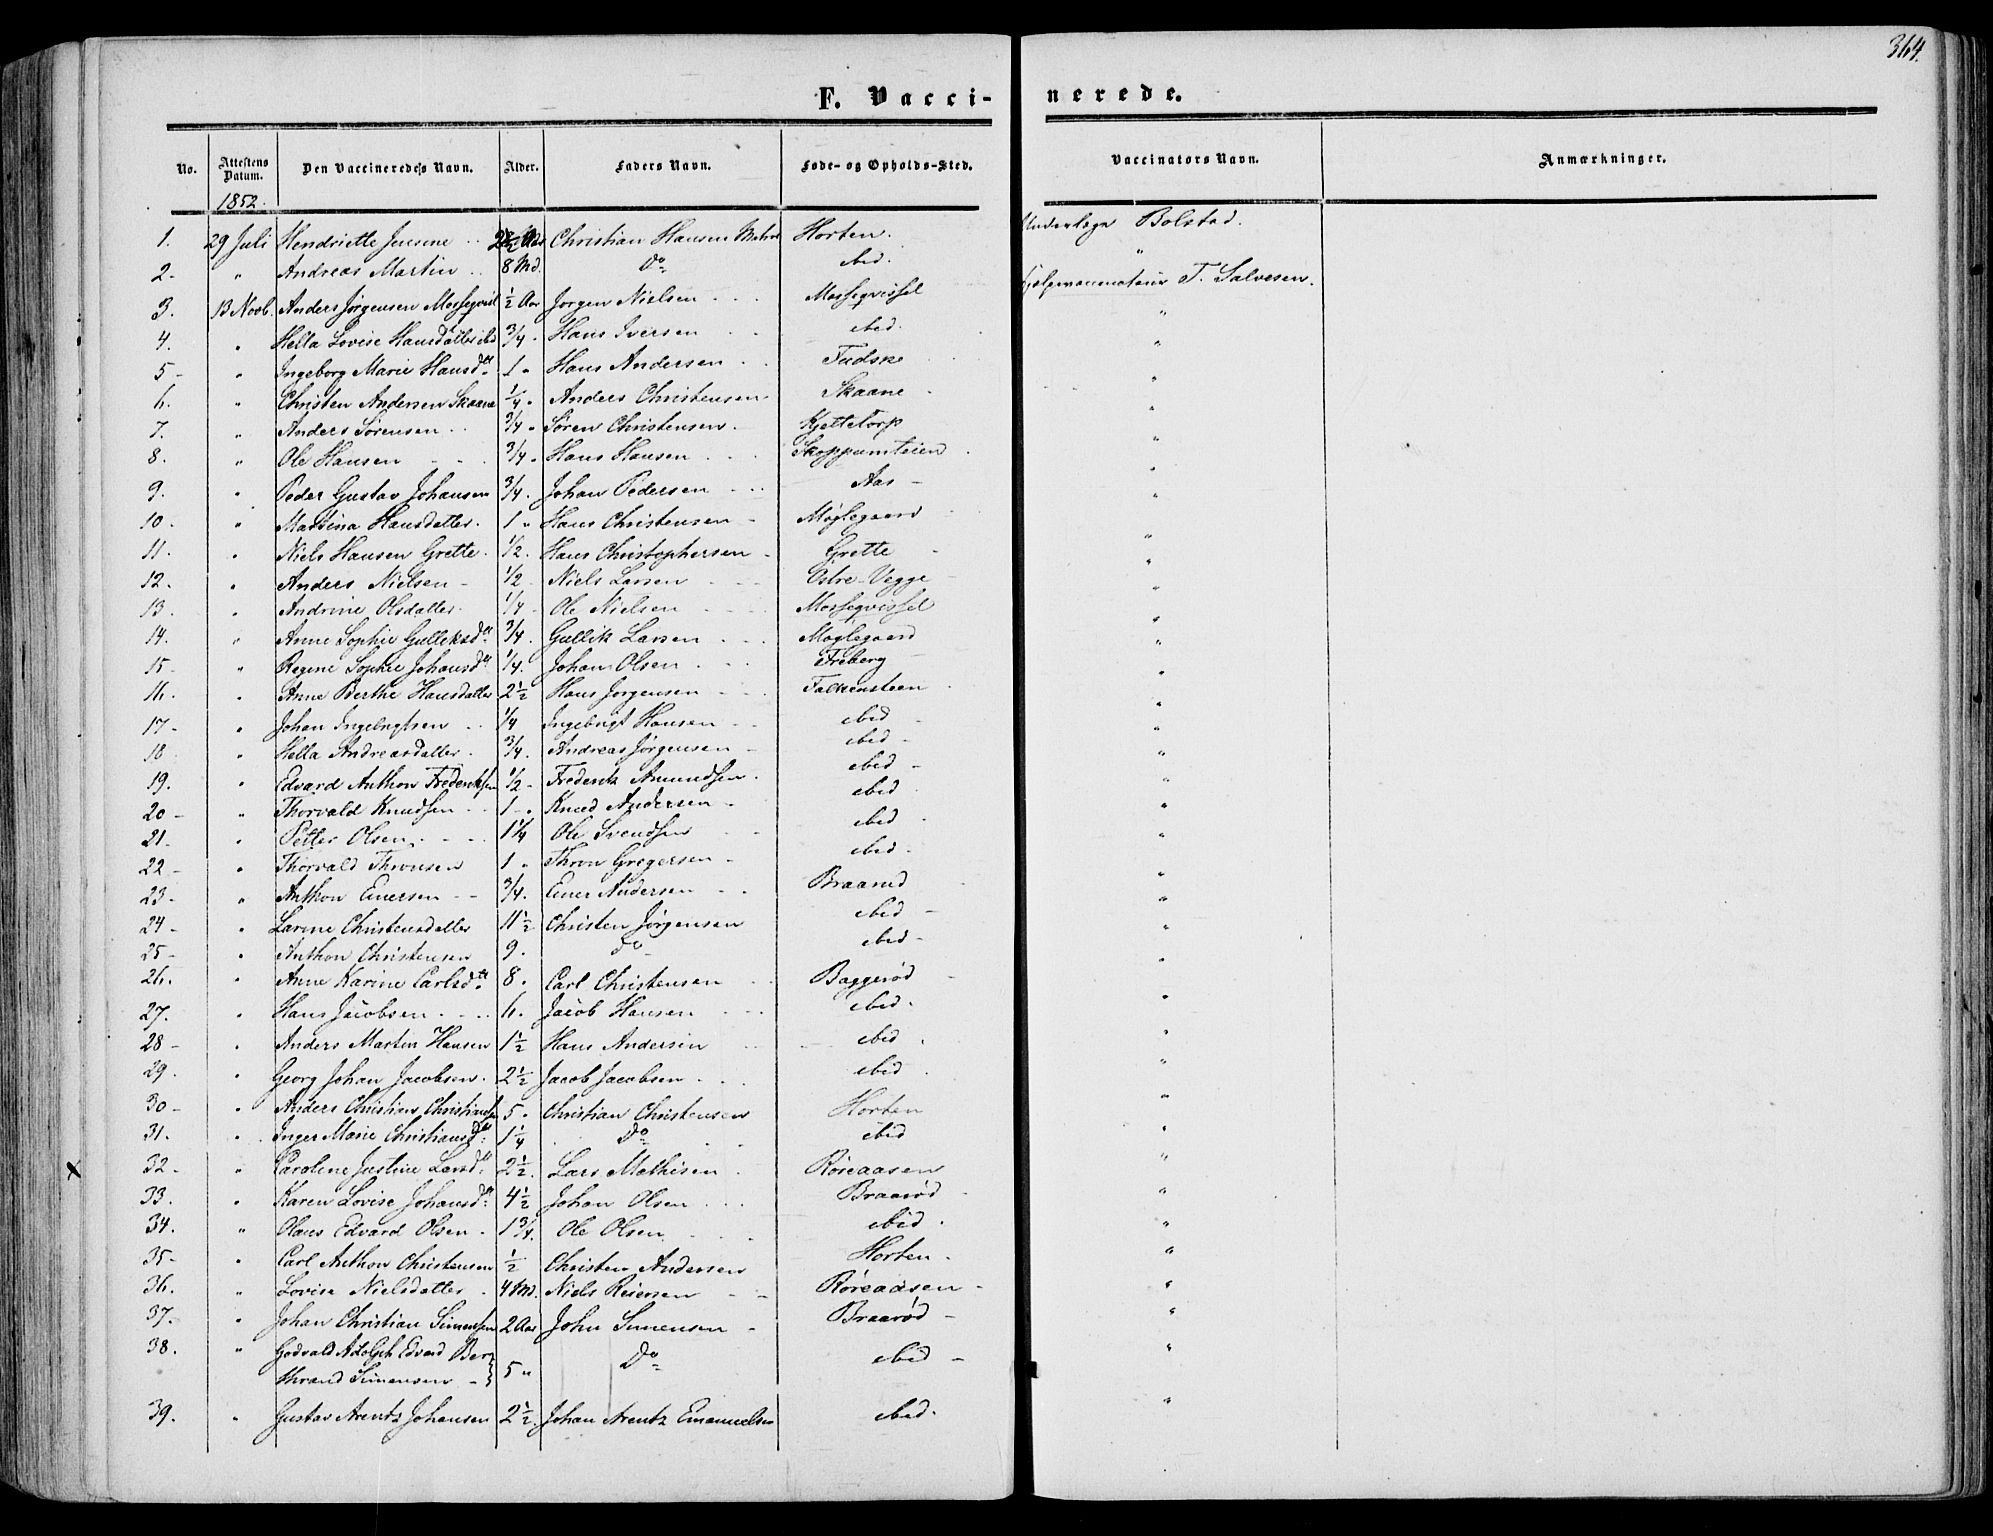 364.
F. Vaccinerede.
No. Attestens Datum. Den Vaccineredes Navn. Alder. Faders Navn. Føde- og Opholds-Sted. Vaccinators Navn. Anmærkninger.
1852.
1. 29 Juli Hendriette Jensine 2½ Aar Christian Hansen Horten. Underlæge Bolstad.
2. " Andreas Martin 8 Md. Do ibid. "
3. 13 Novb. Anders Jørgensen ½ Aar Jørgen Nielsen Mossegvissel Hjelpevaccinateur T. Salvesen.
4. " Hella Lovise Hansdatter ibid ¾ " Hans Iversen ibid. "
5 - " Ingeborg Marie Hansdtr 1 " Hans Andersen Fadske "
6. " Christen Andersen Skaane ¼ " Anders Christensen Skaane "
7. " Anders Sørensen ¾ " Søren Christensen. Kjettetorp "
8. " Ole Hansen ¾ " Hans Hansen Skoppumteien "
9. " Peder Gustav Johansen ¾ . Johan Pedersen Aas "
10. " Martina Hansdatter. 1 " Hans Christensen Møglegaard "
11. " Niels Hansen Grette. ½. Hans Christophersen Grette "
12. " Anders Nielsen ½ Niels Larsen Østre-Vegge "
13. " Andrine Olsdatter ¼ Ole Nielsen Mossegvissel "
14. " Anne Sophie Gulleksdtr ¾. Gullik Larsen Møglegaard "
15 - " Regine Sophie Johansdtr ¼. Johan Olsen Freberg "
16. " Anne Berthe Hansdatter 2½ Hans Jørgensen Falkensteen "
17 - " Johan Ingebrigtsen ¼ Ingebrigt Hansen ibid "
18 " Hella Andreasdatter ¾. Andreas Jørgensen ibid "
19. " Edvard Anthon Frederiksen ½ Frederik Amundsen ibid "
20 - " Thorvald Knudsen 1 " Knud Andersen ibid "
21. " Petter Olsen 1¼ Ole Svendsen ibid "
22 - " Thorvald Thronsen 1 " Thron Gregersen ibid "
23 - " Anthon Enersen ¾. Ener Andersen Braarud "
24 - " Larine Christensdatter 11½ Christen Jørgensen ibid "
25 - " Anthon Christensen 9. Do ibid "
26. " Anne Karine Carlsdtr 8. Carl Christensen Baggerød "
27. " Hans Jacobsen 6. Jacob Hansen ibid "
28 - " Anders Martin Hansen 1½ Hans Andersen ibid "
29. " Georg Johan Jacobsen. 2½ Jacob Jacobsen ibid "
30 - " Anders Christian Christiansen 5. Christian Christensen Horten "
31. " Inger Marie Christiansdtr 1¼ Do ibid "
32 - " Caroline Justine Larsdtr 2½. Lars Mathisen Røreaasen "
33. " Karen Lovise Johansdtr 4½ Johan Olsen Braarød "
34. " Olaus Edvard Olsen. 1¾. Ole Olsen ibid "
35 - " Carl Anthon Christensen ½ Christen Andersen Horten "
36. " Lovise Nielsdatter 4 Md. Niels Reiersen Røreaasen "
37. " Johan Christian Simensen 2 Aar John Simensen Braarød "
38. " Godvald Adolph Edvard Ber-
thrand Simensen 5 " Do ibid "
39. " Gustav Arentz Johansen 2½. Johan Arentz Emanuelsen ibid. "